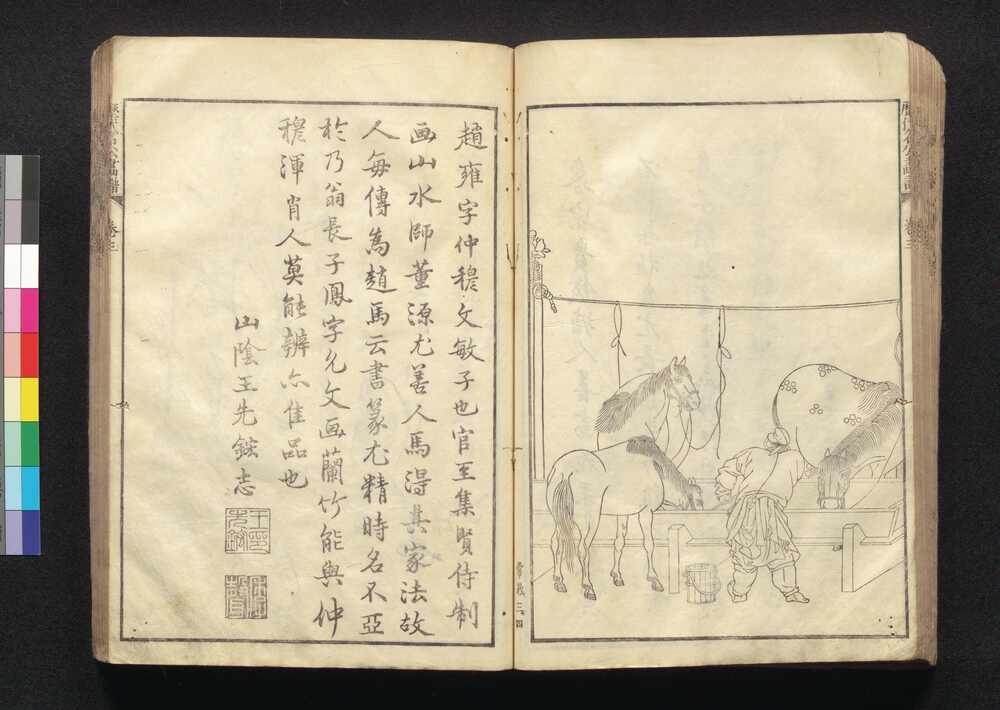 歷代名公畫譜
卷三
趙雍字仲穆文敏子也官至集賢侍制
画山水師董源尤善人馬得其家法故
人每傳為趙馬云書篆尤精時名不亞
於乃翁長子鳳字允文画蘭竹能與仲
穆渾肖人莫能辨亦佳品也
山陰王先鋐志
歷代名公畫譜
卷三